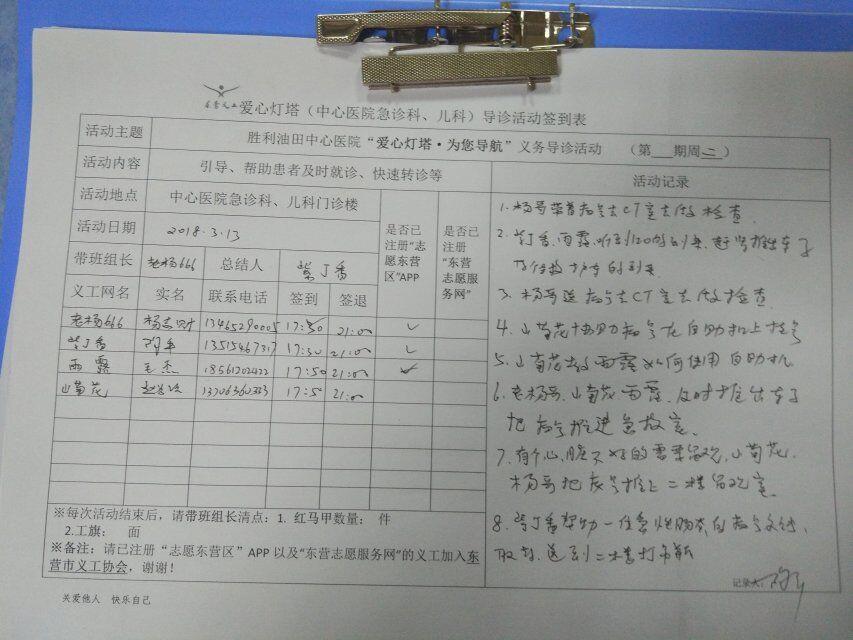 爱心灯塔（中心医院急诊科、儿科）导诊活动签到表
活动主题 胜利油田中心医院“爱心灯塔·为您导航”义务导诊活动 （第 期周二）
活动内容 引导、帮助患者及时就诊、快速转诊等 活动记录
活动地点 中心医院急诊科、儿科门诊楼 是否已注册“志愿东营区”APP 是否已注册“东营志愿服务网”
活动日期 2018.3.13
带班组长 老杨666 总结人 紫丁香
义工网名 实名 联系电话 签到 签退
老杨666 13465290005 17:50 21:00 ✓
紫丁香 13515467317 17:50 21:00 ✓
雨露 王杰 18561202422 17:50 21:00 ✓
山菊花 17:50 21:00
1.杨哥带着病号去CT室去做检查
2.紫丁香、雨露听到120的到来，赶紧推出车子
3.杨哥送病号去CT室去做检查
4.山菊花协助病号在自助机上挂号
5.山菊花教雨露如何使用自助机
6.老杨哥、山菊花、雨露、及时推出车子
把病号推进急救室。
7.有个心脏不好的需要留观，山菊花、
杨哥把病号推上二楼留观室
8.紫丁香帮助一位
取药、送到二楼打吊瓶
※每次活动结束后，请带班组长清点：1. 红马甲数量： 件
2.工旗： 面
※备注：请已注册“志愿东营区”APP 以及“东营志愿服务网”的义工加入东
营市义工协会，谢谢！
记录人：
关爱他人 快乐自己